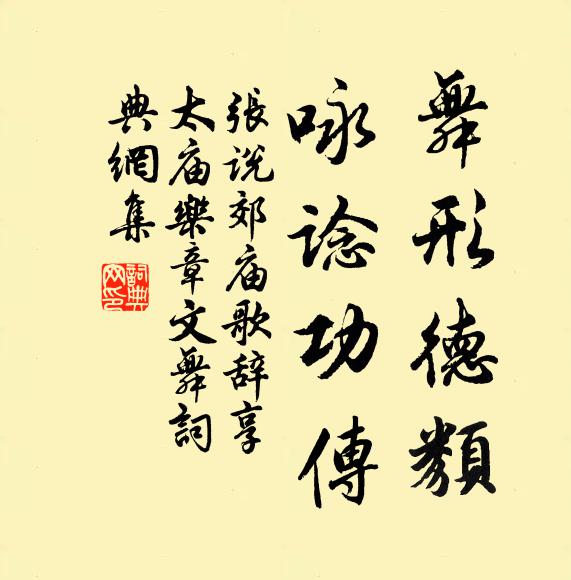 舞形德類
咏諗功傳
張説郊庙歌辞享
太庙樂章文舞詞
典網集
詞典网印